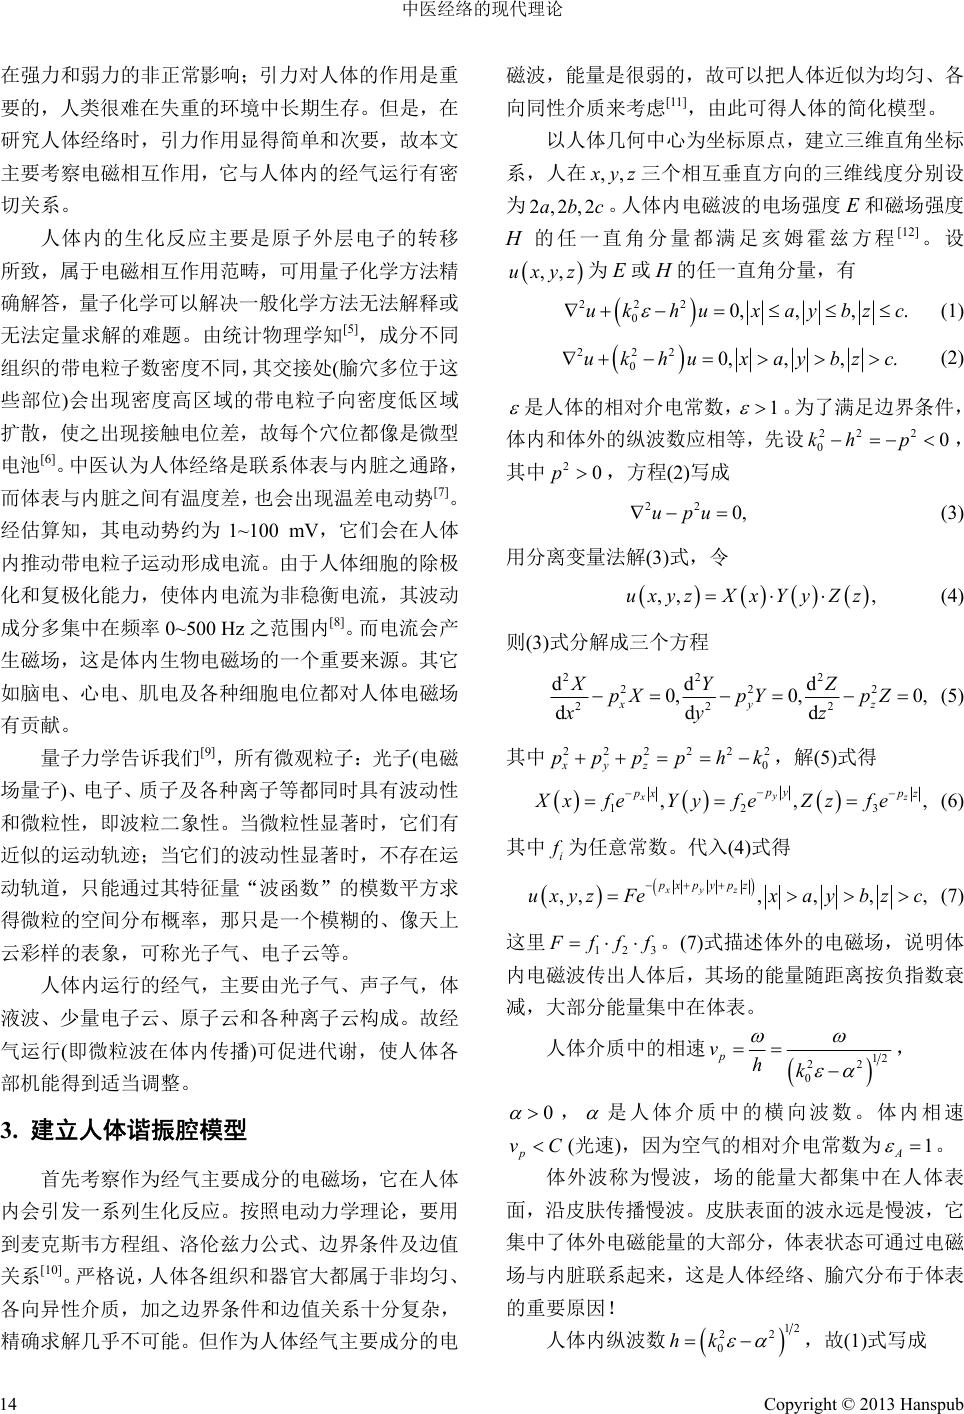 中医经络的现代理论
在强力和弱力的非正常影响；引力对人体的作用是重
要的，人类很难在失重的环境中长期生存。但是，在
研究人体经络时，引力作用显得简单和次要，故本文
主要考察电磁相互作用，它与人体内的经气运行有密
切关系。
人体内的生化反应主要是原子外层电子的转移
所致，属于电磁相互作用范畴，可用量子化学方法精
确解答，量子化学可以解决一般化学方法无法解释或
无法定量求解的难题。由统计物理学知[5]，成分不同
组织的带电粒子数密度不同，其交接处(腧穴多位于这
些部位)会出现密度高区域的带电粒子向密度低区域
扩散，使之出现接触电位差，故每个穴位都像是微型
电池[6]。中医认为人体经络是联系体表与内脏之通路，
而体表与内脏之间有温度差，也会出现温差电动势[7]。
经估算知，其电动势约为 1~100 mV，它们会在人体
内推动带电粒子运动形成电流。由于人体细胞的除极
化和复极化能力，使体内电流为非稳衡电流，其波动
成分多集中在频率 0~500 Hz 之范围内[8]。而电流会产
生磁场，这是体内生物电磁场的一个重要来源。其它
如脑电、心电、肌电及各种细胞电位都对人体电磁场
有贡献。
量子力学告诉我们[9]，所有微观粒子：光子(电磁
场量子)、电子、质子及各种离子等都同时具有波动性
和微粒性，即波粒二象性。当微粒性显著时，它们有
近似的运动轨迹；当它们的波动性显著时，不存在运
动轨道，只能通过其特征量“波函数”的模数平方求
得微粒的空间分布概率，那只是一个模糊的、像天上
云彩样的表象，可称光子气、电子云等。
人体内运行的经气，主要由光子气、声子气，体
液波、少量电子云、原子云和各种离子云构成。故经
气运行(即微粒波在体内传播)可促进代谢，使人体各
部机能得到适当调整。
3. 建立人体谐振腔模型
首先考察作为经气主要成分的电磁场，它在人体
内会引发一系列生化反应。按照电动力学理论，要用
到麦克斯韦方程组、洛伦兹力公式、边界条件及边值
关系[10]。严格说，人体各组织和器官大都属于非均匀、
各向异性介质，加之边界条件和边值关系十分复杂，
精确求解几乎不可能。但作为人体经气主要成分的电
磁波，能量是很弱的，故可以把人体近似为均匀、各
向同性介质来考虑[11]，由此可得人体的简化模型。
以人体几何中心为坐标原点，建立三维直角坐标
系，人在 x, y, z 三个相互垂直方向的三维线度分别设
为 2a, 2b, 2c 。人体内电磁波的电场强度 E 和磁场强度
H 的任一直角分量都满足亥姆霍兹方程[12]。设
u(x, y, z) 为 E 或 H 的任一直角分量，有
∇²u + (k₀²ε − h²)u = 0, |x| ≤ a, |y| ≤ b, |z| ≤ c. (1)
∇²u + (k₀² − h²)u = 0, |x| > a, |y| > b, |z| > c. (2)
ε 是人体的相对介电常数，ε > 1 。为了满足边界条件，
体内和体外的纵波数应相等，先设 k₀² − h² = −p² < 0 ，
其中 p² > 0 ，方程(2)写成
∇²u − p²u = 0, (3)
用分离变量法解(3)式，令
u(x, y, z) = X(x)·Y(y)·Z(z), (4)
则(3)式分解成三个方程
d²X/dx² − pₓ²X = 0, d²Y/dy² − p_y²Y = 0, d²Z/dz² − p_z²Z = 0, (5)
其中 pₓ² + p_y² + p_z² = p² = h² − k₀² ，解(5)式得
X(x) = f₁e^{−pₓ|x|}, Y(y) = f₂e^{−p_y|y|}, Z(z) = f₃e^{−p_z|z|}, (6)
其中 fᵢ 为任意常数。代入(4)式得
u(x, y, z) = Fe^{−(pₓ|x|+p_y|y|+p_z|z|)}, |x| > a, |y| > b, |z| > c, (7)
这里 F = f₁·f₂·f₃ 。(7)式描述体外的电磁场，说明体
内电磁波传出人体后，其场的能量随距离按负指数衰
减，大部分能量集中在体表。
人体介质中的相速 v_p = ω/h = ω/(k₀²ε − α²)^{1/2} ，
α > 0 ，α 是人体介质中的横向波数。体内相速
v_p < C (光速)，因为空气的相对介电常数为 ε_A = 1 。
体外波称为慢波，场的能量大都集中在人体表
面，沿皮肤传播慢波。皮肤表面的波永远是慢波，它
集中了体外电磁能量的大部分，体表状态可通过电磁
场与内脏联系起来，这是人体经络、腧穴分布于体表
的重要原因！
人体内纵波数 h = (k₀²ε − α²)^{1/2} ，故(1)式写成
14
Copyright © 2013 Hanspub